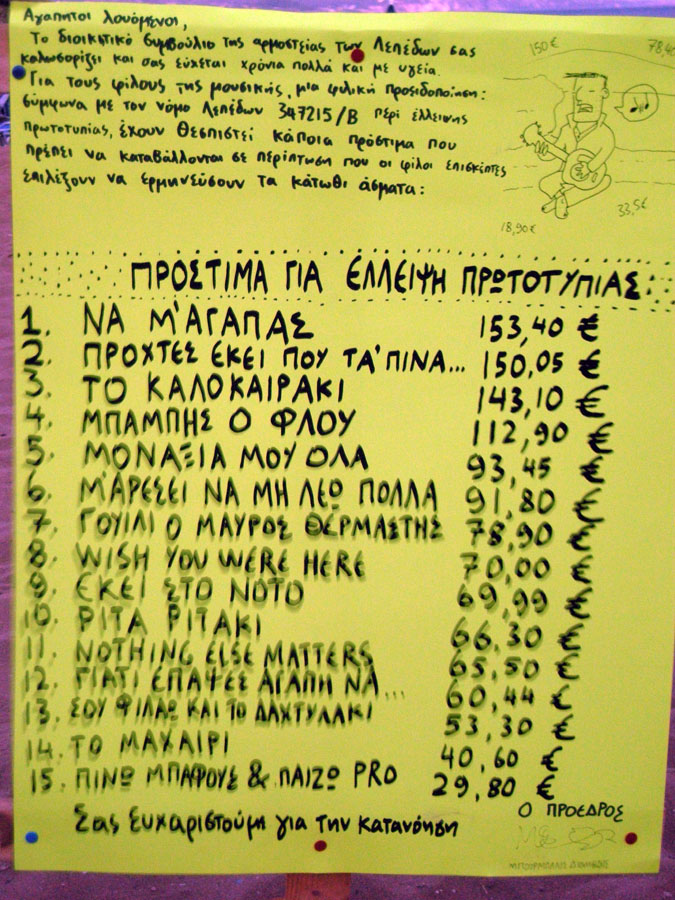 Αγαπητοί λουόμενοι,
Το διοικητικό συμβούλιο της αρμοστείας των Λεπέδων σας
καλωσορίζει και σας εύχεται χρόνια πολλά και με υγεία.
Για τους φίλους της μουσικής, μια φιλική προειδοποίηση:
σύμφωνα με τον νόμο Λεπέδων 347215/Β περί έλλειψης
πρωτοτυπίας, έχουν θεσπιστεί κάποια πρόστιμα που
πρέπει να καταβάλλονται σε περίπτωση που οι φίλοι επισκέπτες
επιλέξουν να ερμηνεύσουν τα κάτωθι άσματα:
150€
78,40
18,90€
33,5€
ΠΡΟΣΤΙΜΑ ΓΙΑ ΕΛΛΕΙΨΗ ΠΡΩΤΟΤΥΠΙΑΣ:
1. ΝΑ Μ'ΑΓΑΠΑΣ 153,40 €
2. ΠΡΟΧΤΕΣ ΕΚΕΙ ΠΟΥ ΤΑ'ΠΙΝΑ... 150,05 €
3. ΤΟ ΚΑΛΟΚΑΙΡΑΚΙ 143,10 €
4. ΜΠΑΜΠΗΣ Ο ΦΛΟΥ 112,90 €
5. ΜΟΝΑΞΙΑ ΜΟΥ ΟΛΑ 93,45 €
6. Μ'ΑΡΕΣΕΙ ΝΑ ΜΗ ΛΕΩ ΠΟΛΛΑ 91,80 €
7. ΓΟΥΙΛΙ Ο ΜΑΥΡΟΣ ΘΕΡΜΑΣΤΗΣ 78,90 €
8. WISH YOU WERE HERE 70,00 €
9. ΕΚΕΙ ΣΤΟ ΝΟΤΟ 69,99 €
10. ΡΙΤΑ ΡΙΤΑΚΙ 66,30 €
11. NOTHING ELSE MATTERS 65,50 €
12. ΓΙΑΤΙ ΕΠΑΨΕΣ ΑΓΑΠΗ ΝΑ... 60,44 €
13. ΣΟΥ ΦΙΛΑΩ ΚΑΙ ΤΟ ΔΑΧΤΥΛΑΚΙ 53,30 €
14. ΤΟ ΜΑΧΑΙΡΙ 40,60 €
15. ΠΙΝΩ ΜΠΑΦΟΥΣ & ΠΑΙΖΩ PRO 29,80 €
Σας Ευχαριστούμε για την κατανόηση
Ο ΠΡΟΕΔΡΟΣ